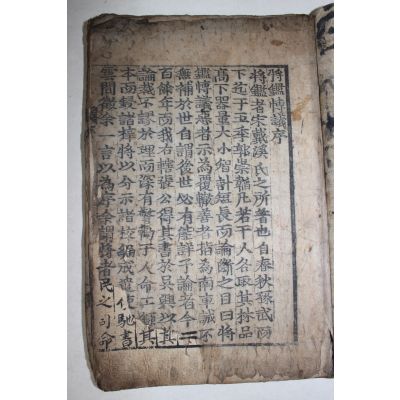 將鑑博議序
將鑑者宋戴溪氏之所著也自春秋孫武而
下迄于五季郭崇韜凡若干人各取其材品
高下器量大小智計短長而論斷之曰將
鑑博議惡者示爲覆轍善者指爲南車誠不
無補於世自謂後世必有能詳于論者今二
百餘年而我右轄張公得其書於吳興以其
論裁不謬於理而深有警勸于人命工鋟其
本而鋟諸梓將以分示諸
雲間徵余一言以爲序余謂將者民之司命